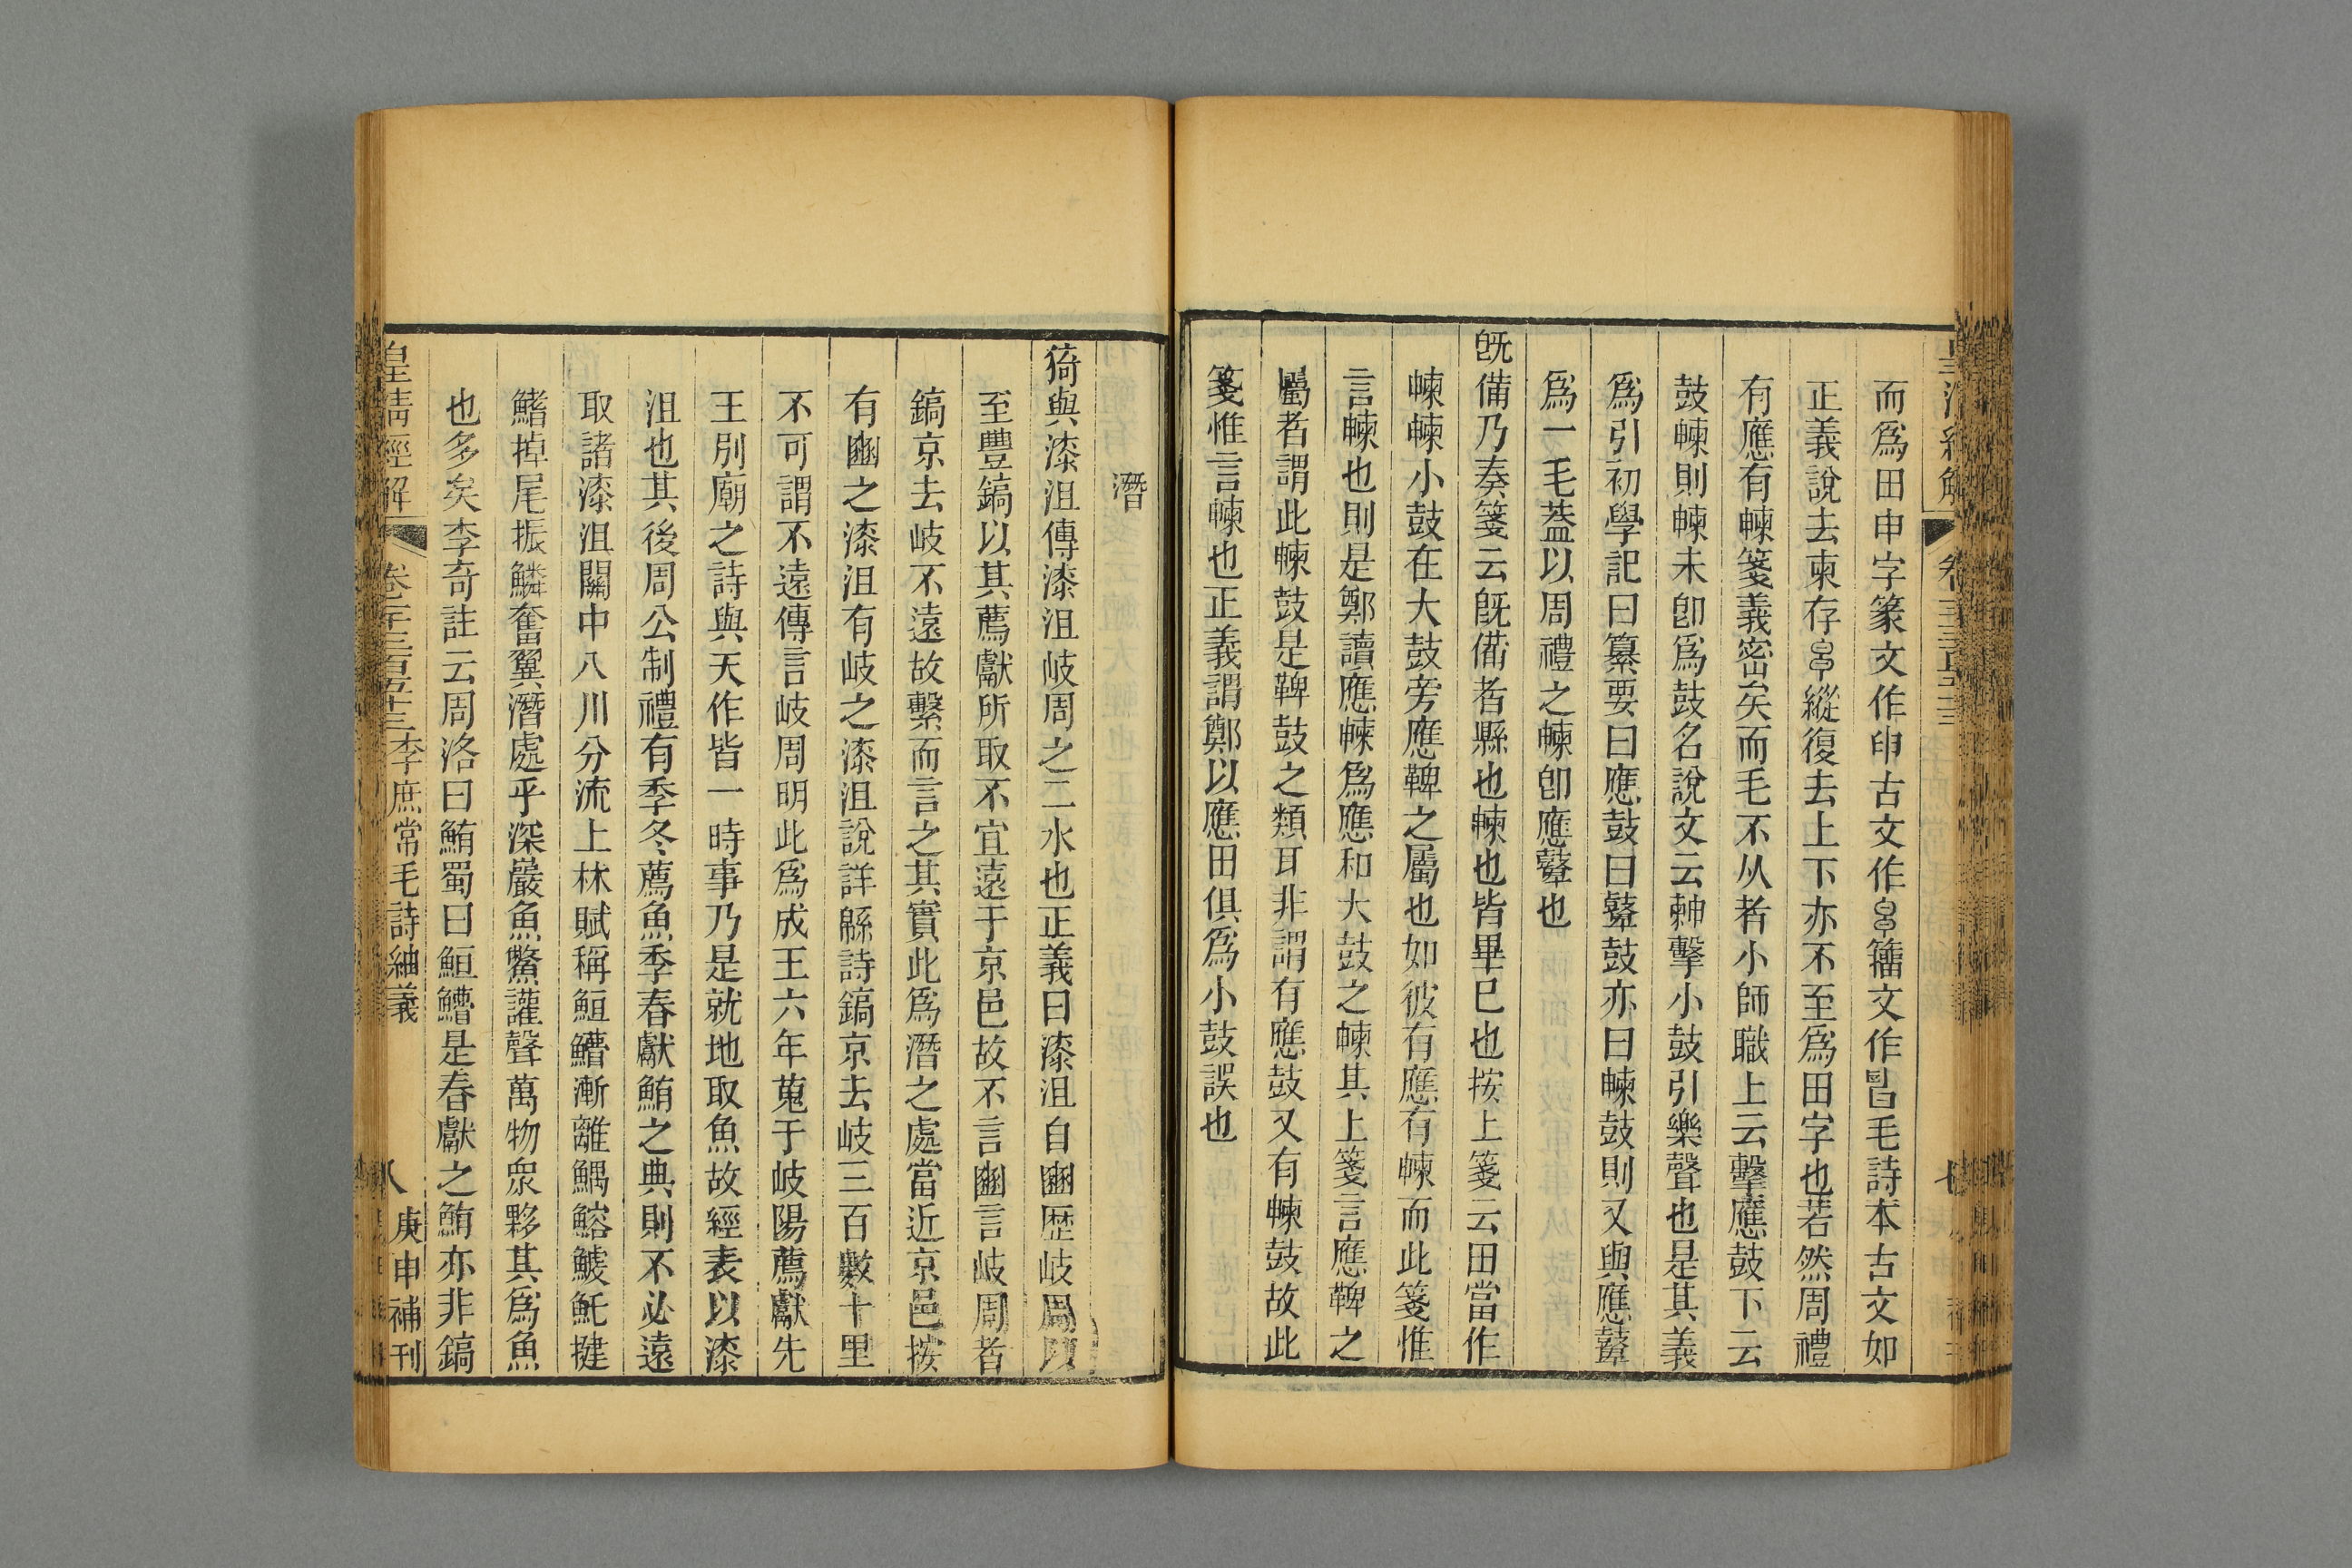 而爲田申字篆文作申古文作籀文作毛詩本古文如
正義說去柬存縱復去上下亦不至爲田字也若然周禮
有應有朄箋義密矣而毛不从者小師職上云擊應鼓下云
鼓朄則朄未卽爲鼓名說文云朄擊小鼓引樂聲也是其義
爲引初學記曰纂要曰應鼓曰鼓亦曰朄鼓則又與應鼙
爲一毛葢以周禮之朄卽應鼙也
旣備乃奏箋云旣備者縣也朄也皆畢已也按上箋云田當作
朄朄小鼓在大鼓旁應鞞之屬也如彼有應有朄而此箋惟
言朄也則是鄭讀應朄爲應和大鼓之朄其上箋言應鞞之
屬者謂此朄鼓是鞞鼓之類耳非謂有應鼓又有朄鼓故此
箋惟言朄也正義謂鄭以應田俱爲小鼓誤也
潛
猗與漆沮傳漆沮岐周之二水也正義曰漆沮自豳歷岐周以
至豐鎬以其薦獻所取不宜遠于京邑故不言豳言岐周者
鎬京去岐不遠故繫而言之其實此爲潛之處當近京邑按
有豳之漆沮有岐之漆沮說詳緜詩鎬京去岐三百數十里
不可謂不遠傳言岐周明此爲成王六年蒐于岐陽薦獻先
王別廟之詩與天作皆一時事乃是就地取魚故經表以漆
沮也其後周公制禮有季冬薦魚季春獻鮪之典則不必遠
取諸漆沮關中八川分流上林賦稱䱎䲛漸離鰅鰫鰬魠揵
鰭掉尾振鱗奮翼潛處乎深巖魚鱉讙聲萬物衆夥其爲魚
也多矣李奇註云周洛曰鮪蜀曰䱎䲛是春獻之鮪亦非鎬
皇清經解 卷一千三百五十三 李庶常毛詩紬義 八 庚申補刊